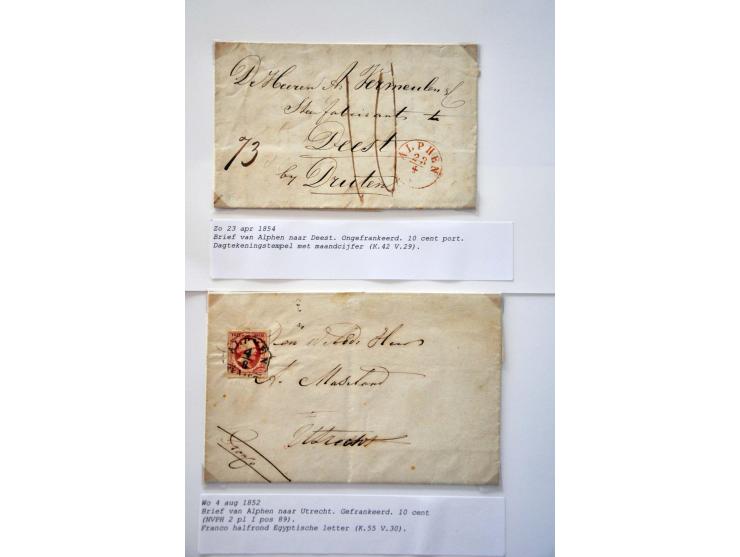 De Heeren A. Vermeulen &
Steenfabrikants te
Deest
by Druten
73
ALPHEN
23
4
Zo 23 apr 1854
Brief van Alphen naar Deest. Ongefrankeerd. 10 cent port.
Dagtekeningstempel met maandcijfer (K.42 V.29).
ALPHEN
4
8
Den
Heer
A.
Utrecht
Franco
Wo 4 aug 1852
Brief van Alphen naar Utrecht. Gefrankeerd. 10 cent
(NVPH 2 pl I pos 89).
Franco halfrond Egyptische letter (K.55 V.30).